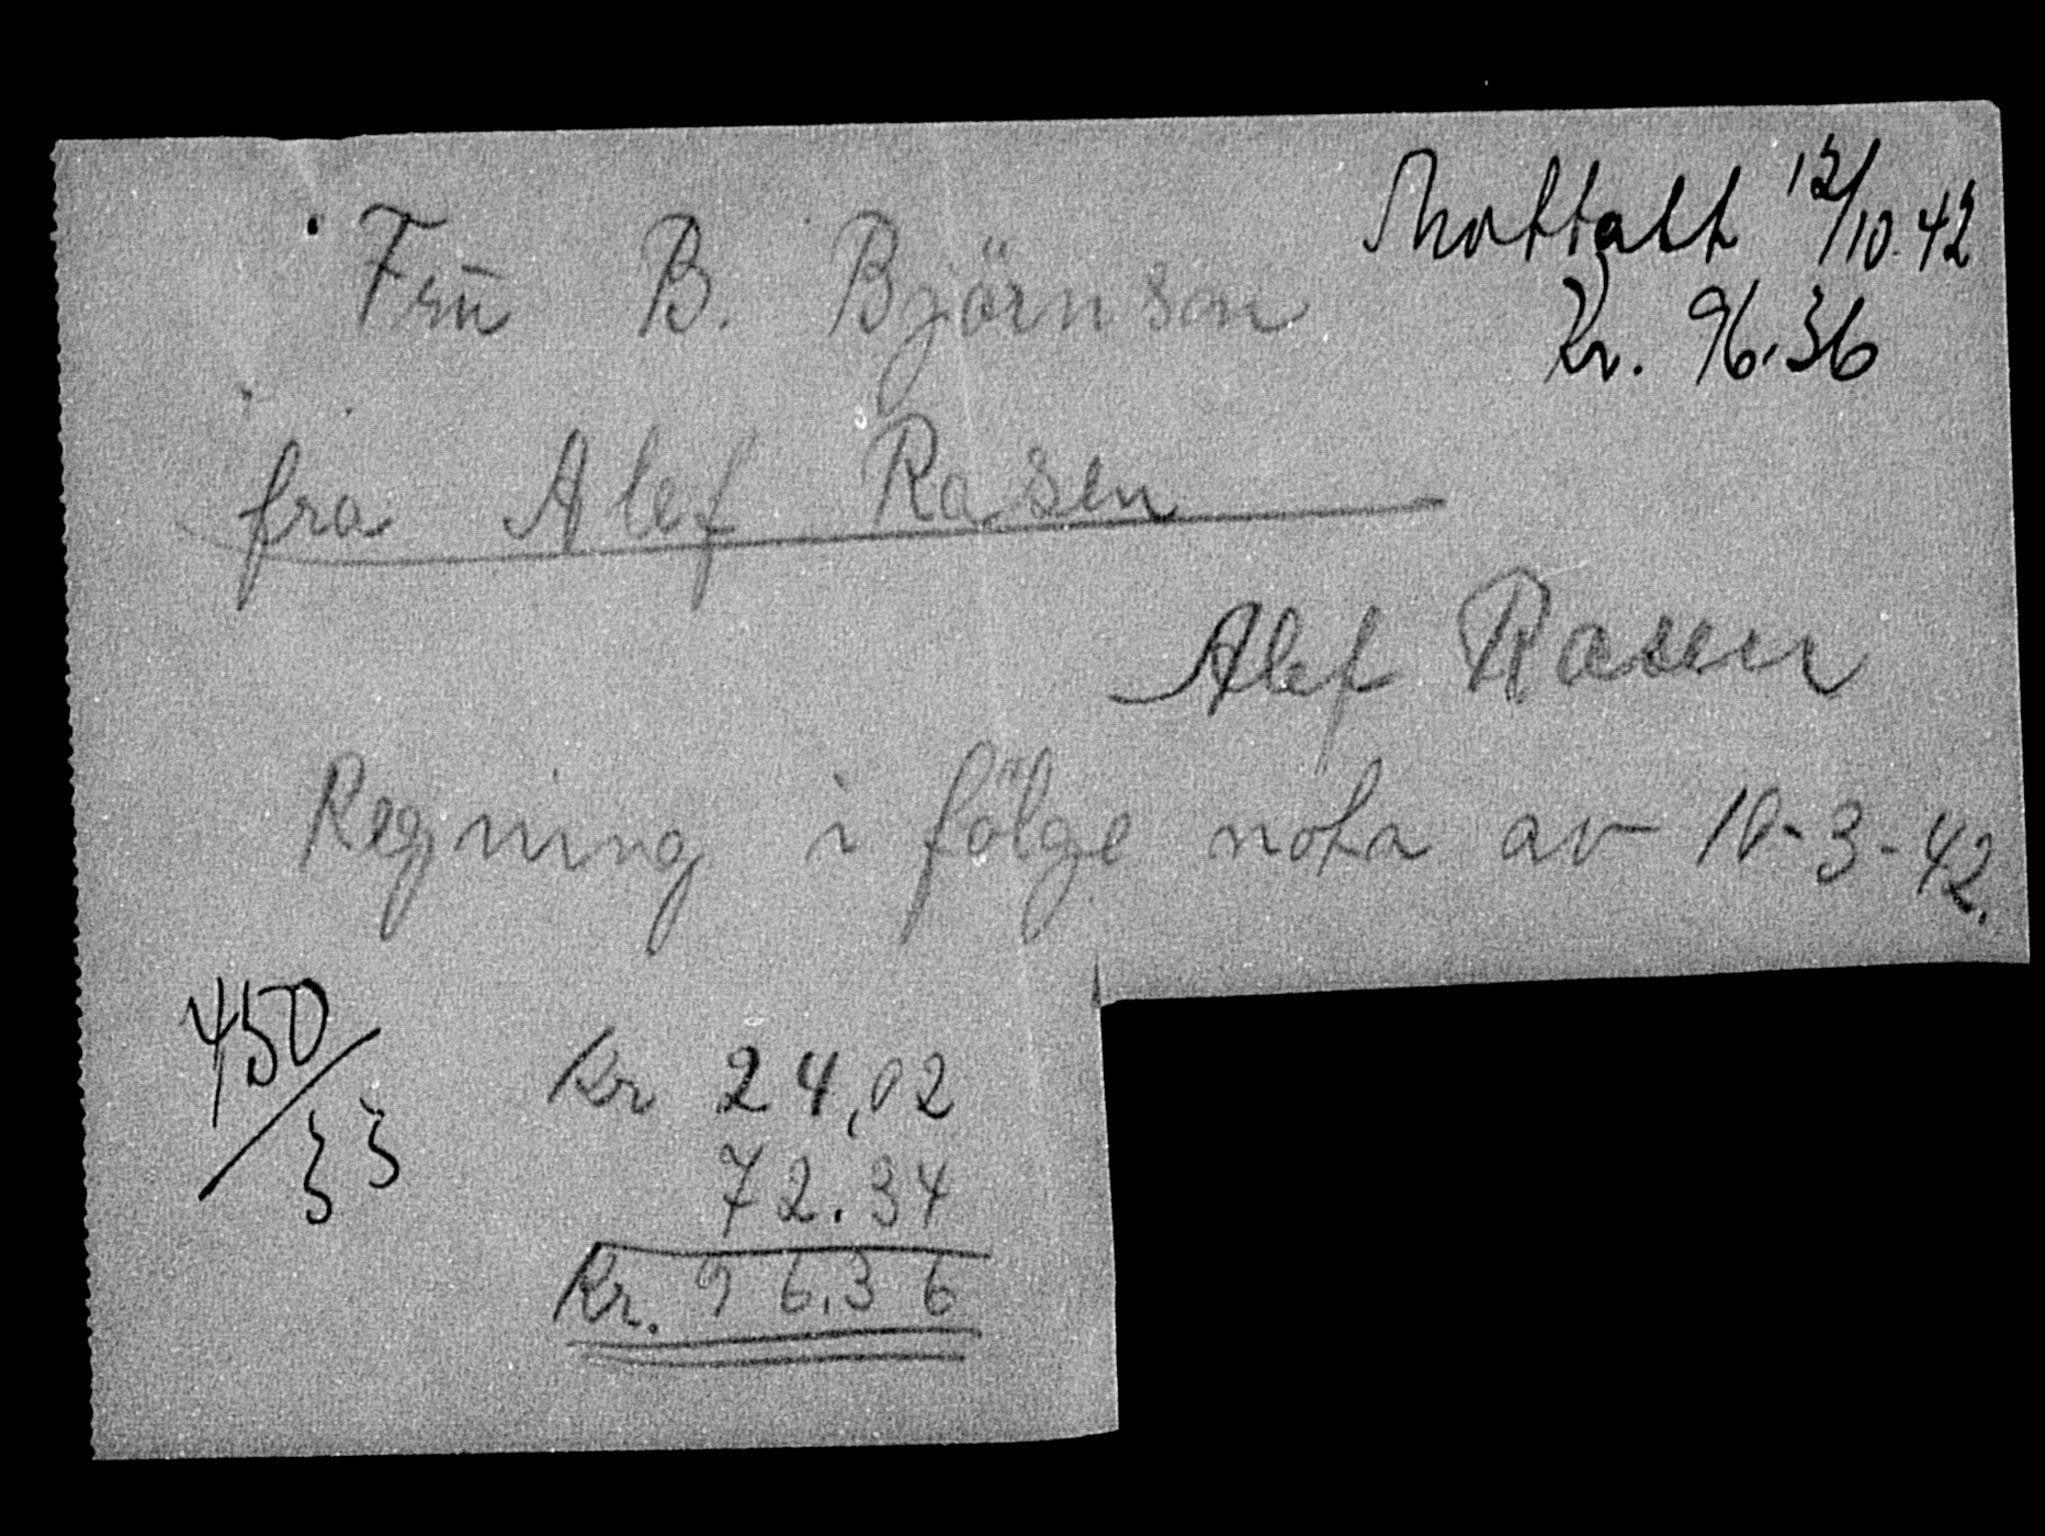 Mottatt 12/10.42
Kr. 96.36
Frū B. Björnson
fra Alef Rasen
Alef Rasen
Regning i følge nota av 10-3-42.
450/33
Kr 24,02
72.34
Kr. 96,36